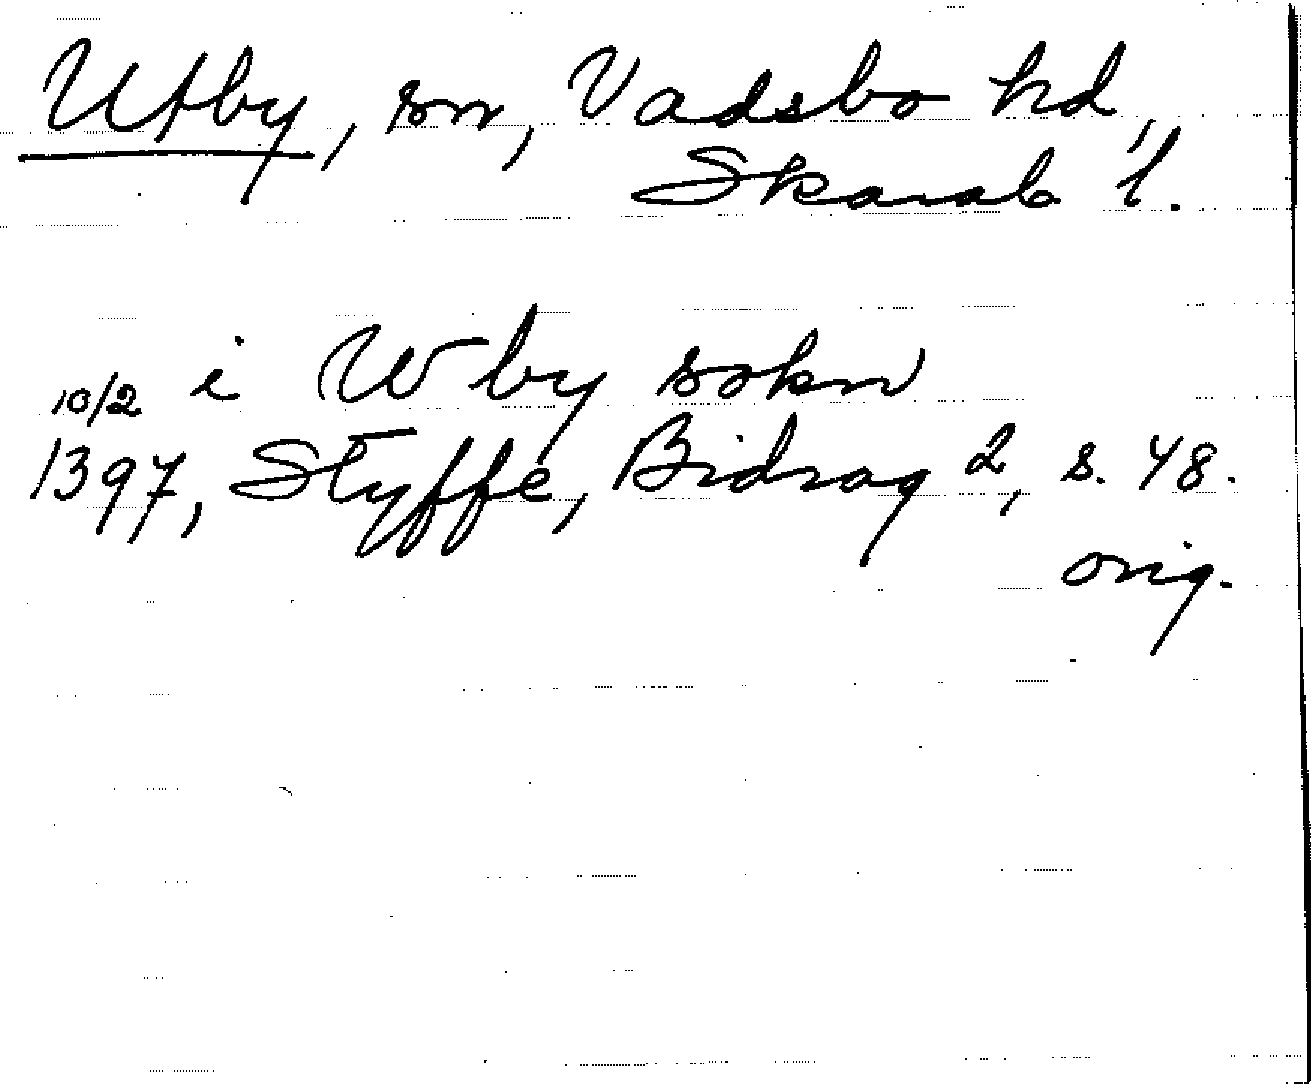 Utby, sn, Vadsbo hd,
Skarab l.
i Wby sokn
10/2
1397, Styffe, Bidrag 2, s. 48.
orig.